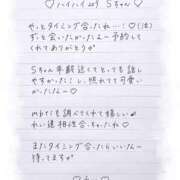 ♡ハイハイより Sちゃん♡
やっとタイミング合ったね…！♡(泣)
ずっと会いたかったんだー予約して
くれてありがとう♂
Sちゃん年齢近くてとっても話し
やすかった！し、照れてて可愛い
かったんだー♡
mbtiも調べてくれて嬉しい
れい達相性合っちゃったね♡
またタイミング合たらいいなー
待ってます♂